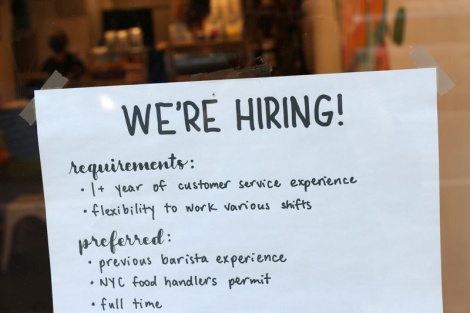 WE'RE HIRING!
requirements:
• 1+ year of customer service experience
• flexibility to work various shifts
preferred:
• previous barista experience
• NYC food handlers permit
• full time